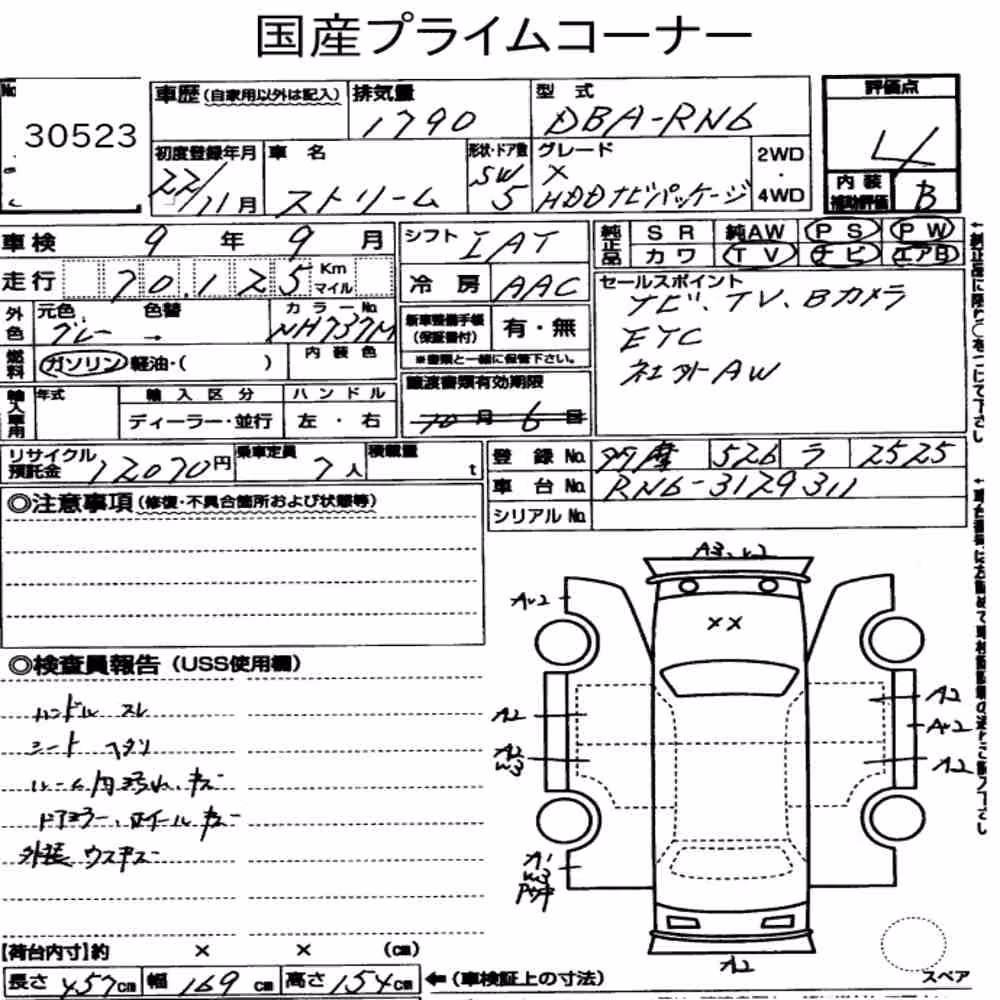 国産プライムコーナー
No 30523
車歴 (自家用以外は記入) 排気量 1790 型式 DBA-RN6
評価点 4
内装補助評価 B
初度登録年月 22/11月 車名 ストリーム 形状・ドア数 SW 5 グレード X HDDナビパッケージ 2WD・4WD
車検 9年9月 シフト IAT
純正品 SR 純AW PS PW
カワ TV ナビ エアB
走行 70,125 Km マイル 冷房 AAC
セールスポイント
ナビ、TV、Bカメラ
ETC
社外AW
外色 元色 グレー → 色替 カラーNo NH737M
新車整備手帳(保証書付) 有・無
※書類と一緒に保管下さい。
燃料 ガソリン 軽油・( ) 内装色
譲渡書類有効期限
10月6日
輸入車用 年式 輸入区分 ディーラー・並行 ハンドル 左・右
リサイクル預託金 12070円 乗車定員 7人 積載量 t
登録No 多摩 526 ラ 2525
車台No RN6-3129311
シリアルNo
◎注意事項(修復・不具合箇所および状態等)
◎検査員報告 (USS使用欄)
ハンドル スレ
シート ヘタリ
ルーム内汚れ、キズ
ドアミラー、ホイールキズ
外装 ウスキズ
A3、 2
A 2
XX
A2
A2
A 2
A2
W3
A2
A1
W3
A2
スペア
【荷台内寸】約 × × (cm)
長さ 457cm 幅 169cm 高さ 154cm ←(車検証上の寸法)